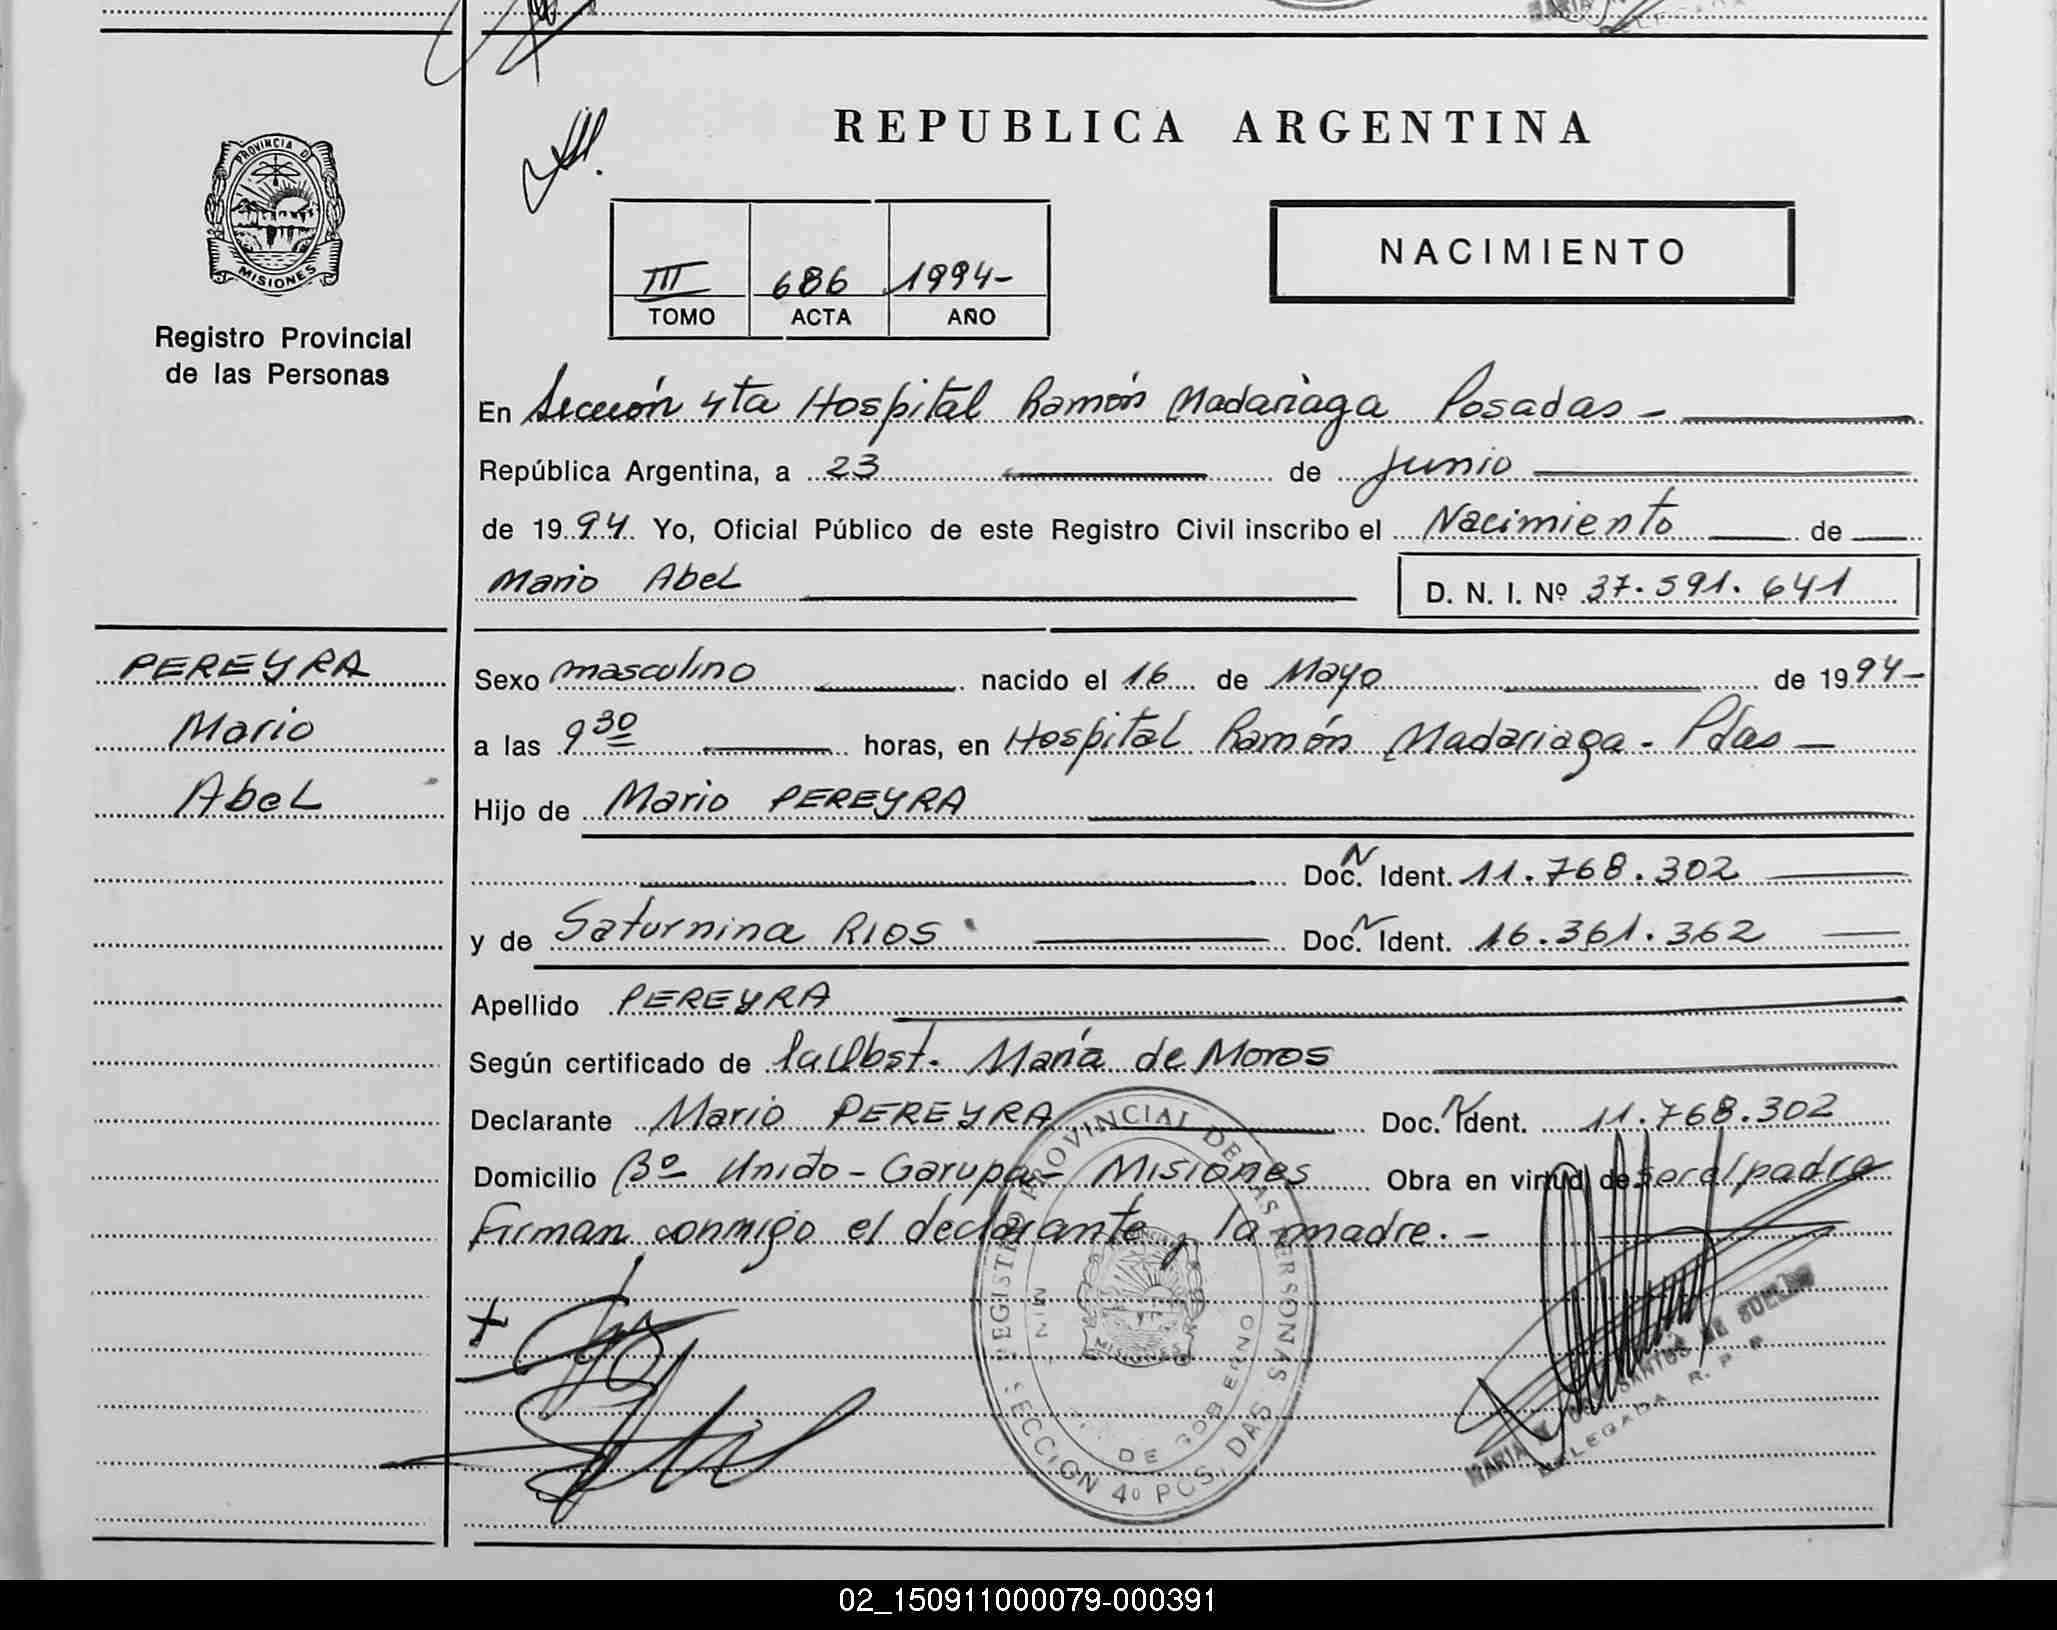 REPUBLICA ARGENTINA
PROVINCIA D
MISIONES
Registro Provincial
de las Personas
III 686 1994-
TOMO ACTA AÑO
NACIMIENTO
En Sección 4ta Hospital Ramón Madariaga Posadas -
República Argentina, a 23 de Junio
de 1994. Yo, Oficial Público de este Registro Civil inscribo el Nacimiento de
Mario Abel D. N. I. Nº 37.591.641
PEREYRA
Mario
Abel
Sexo masculino nacido el 16 de Mayo de 1994-
a las 9 30 horas, en Hospital Ramón Madariaga - Pdas -
Hijo de Mario PEREYRA
Doc. N Ident. 11.768.302
y de Saturnina RIOS Doc. N Ident. 16.361.362
Apellido PEREYRA
Según certificado de la Obst. María de Moros
Declarante Mario PEREYRA Doc. N Ident. 11.768.302
Domicilio Bº Unido - Garupa - Misiones Obra en virtud de ser el padre
Firman conmigo el declarante y la madre. -
REGISTRO PROVINCIAL DE LAS PERSONAS
MIN DE GOBIERNO
MISIONES
SECCION 4º POSADAS
MARIA DOS SANTOS DE
DELEGADA R. P. P.
02_150911000079-000391